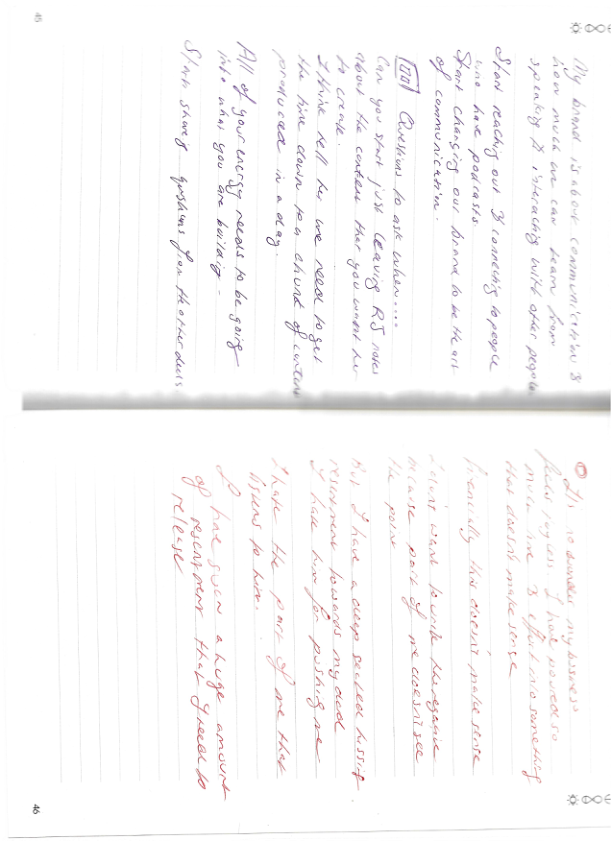 45
My brand is about communication &
how much we can learn from
speaking & interacting with other people
Start reaching out & connecting to people
who have podcasts.
Start changing our brand to be the art
of communication.
Questions to ask when....
Can you start just leaving RJ notes
about the content that you want her
to create.
I think tell her we need to get
the time down to a chunk of content
produced in a day.
All of your energy needs to be going
into what you are building.
Start sharing questions from the other
46
It's no wonder my business
feels I have poured so
much time & effort into something
that doesn't make sense
this doesn't make sense
doesn't want to write the
because part of me doesn't see
the point
But I have a deep seated hissing
resentment towards my dad
I hate him for pushing me
I hate the part of me that
listens to him.
I have such a huge amount
of resentment that I need to
release